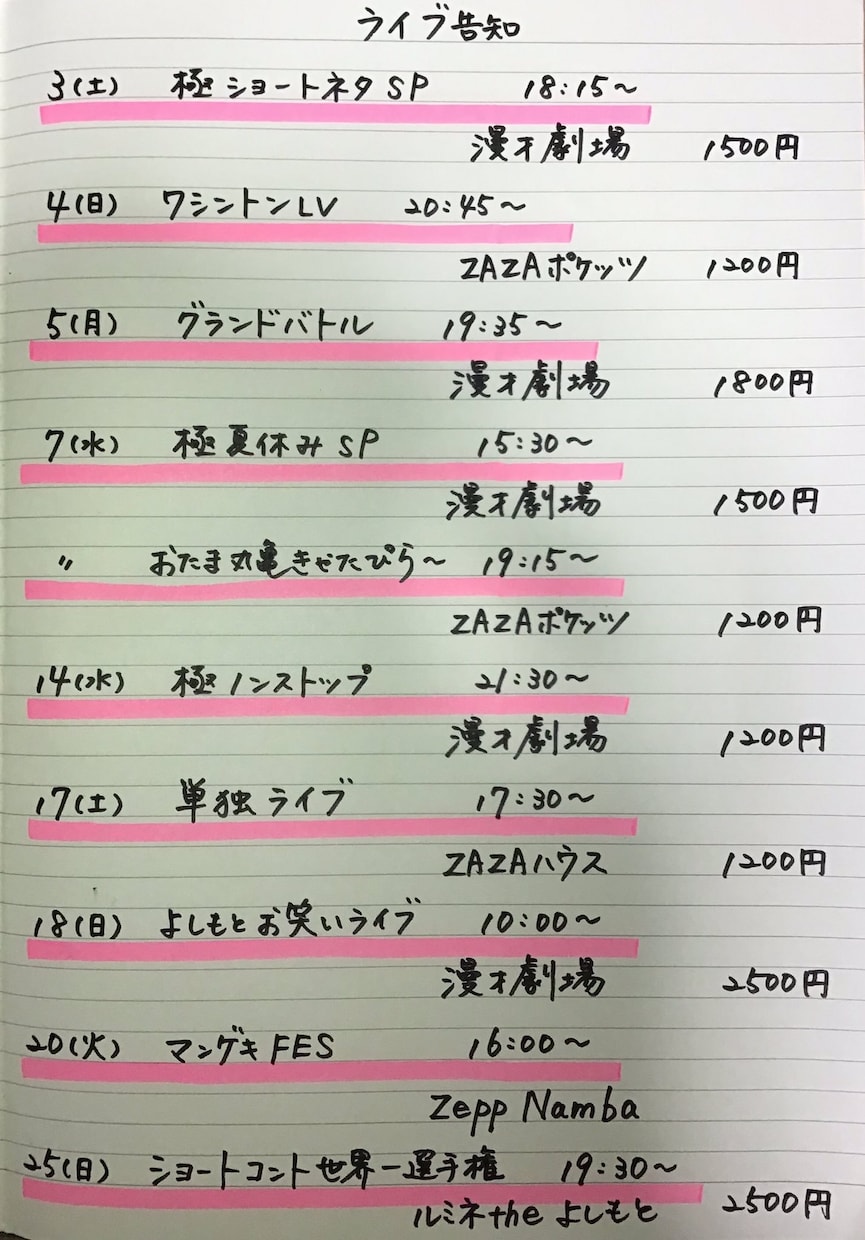 ライブ告知
3(土) 極ショートネタSP 18:15〜
漫才劇場 1500円
4(日) ワシントンLV 20:45〜
ZAZAポケッツ 1200円
5(月) グランドバトル 19:35〜
漫才劇場 1800円
7(水) 極夏休みSP 15:30〜
漫才劇場 1500円
〃 おたま丸亀きせたぴら〜 19:15〜
ZAZAポケッツ 1200円
14(水) 極ノンストップ 21:30〜
漫才劇場 1200円
17(土) 単独ライブ 17:30〜
ZAZAハウス 1200円
18(日) よしもとお笑いライブ 10:00〜
漫才劇場 2500円
20(火) マンゲキFES 16:00〜
Zepp Namba
25(日) ショートコント世界一選手権 19:30〜
ルミネtheよしもと 2500円